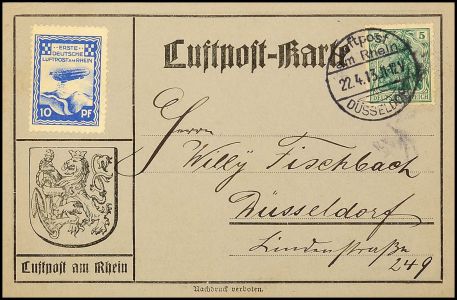 ERSTE
DEUTSCHE
LUFTPOST AM RHEIN
10 PF
Luftpost-Karte
Luftpost
am Rhein
22.4.13.
DÜSSELDORF
5
Herrn
Willy Fischbach
Düsseldorf
Lindenstraße
249
Luftpost am Rhein
Nachdruck verboten.